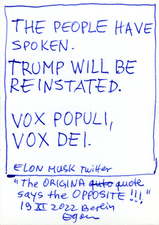 THE PEOPLE HAVE
SPOKEN.
TRUMP WILL BE
REINSTATED.
VOX POPULI,
VOX DEI.
ELON MUSK Twitter
"The ORIGINA quote
says the OPPOSITE !!!"
19 XI 2022 Berlin